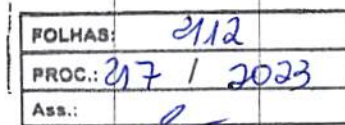 FOLHAS: 2112
PROC.: 217 / 2023
Ass.: